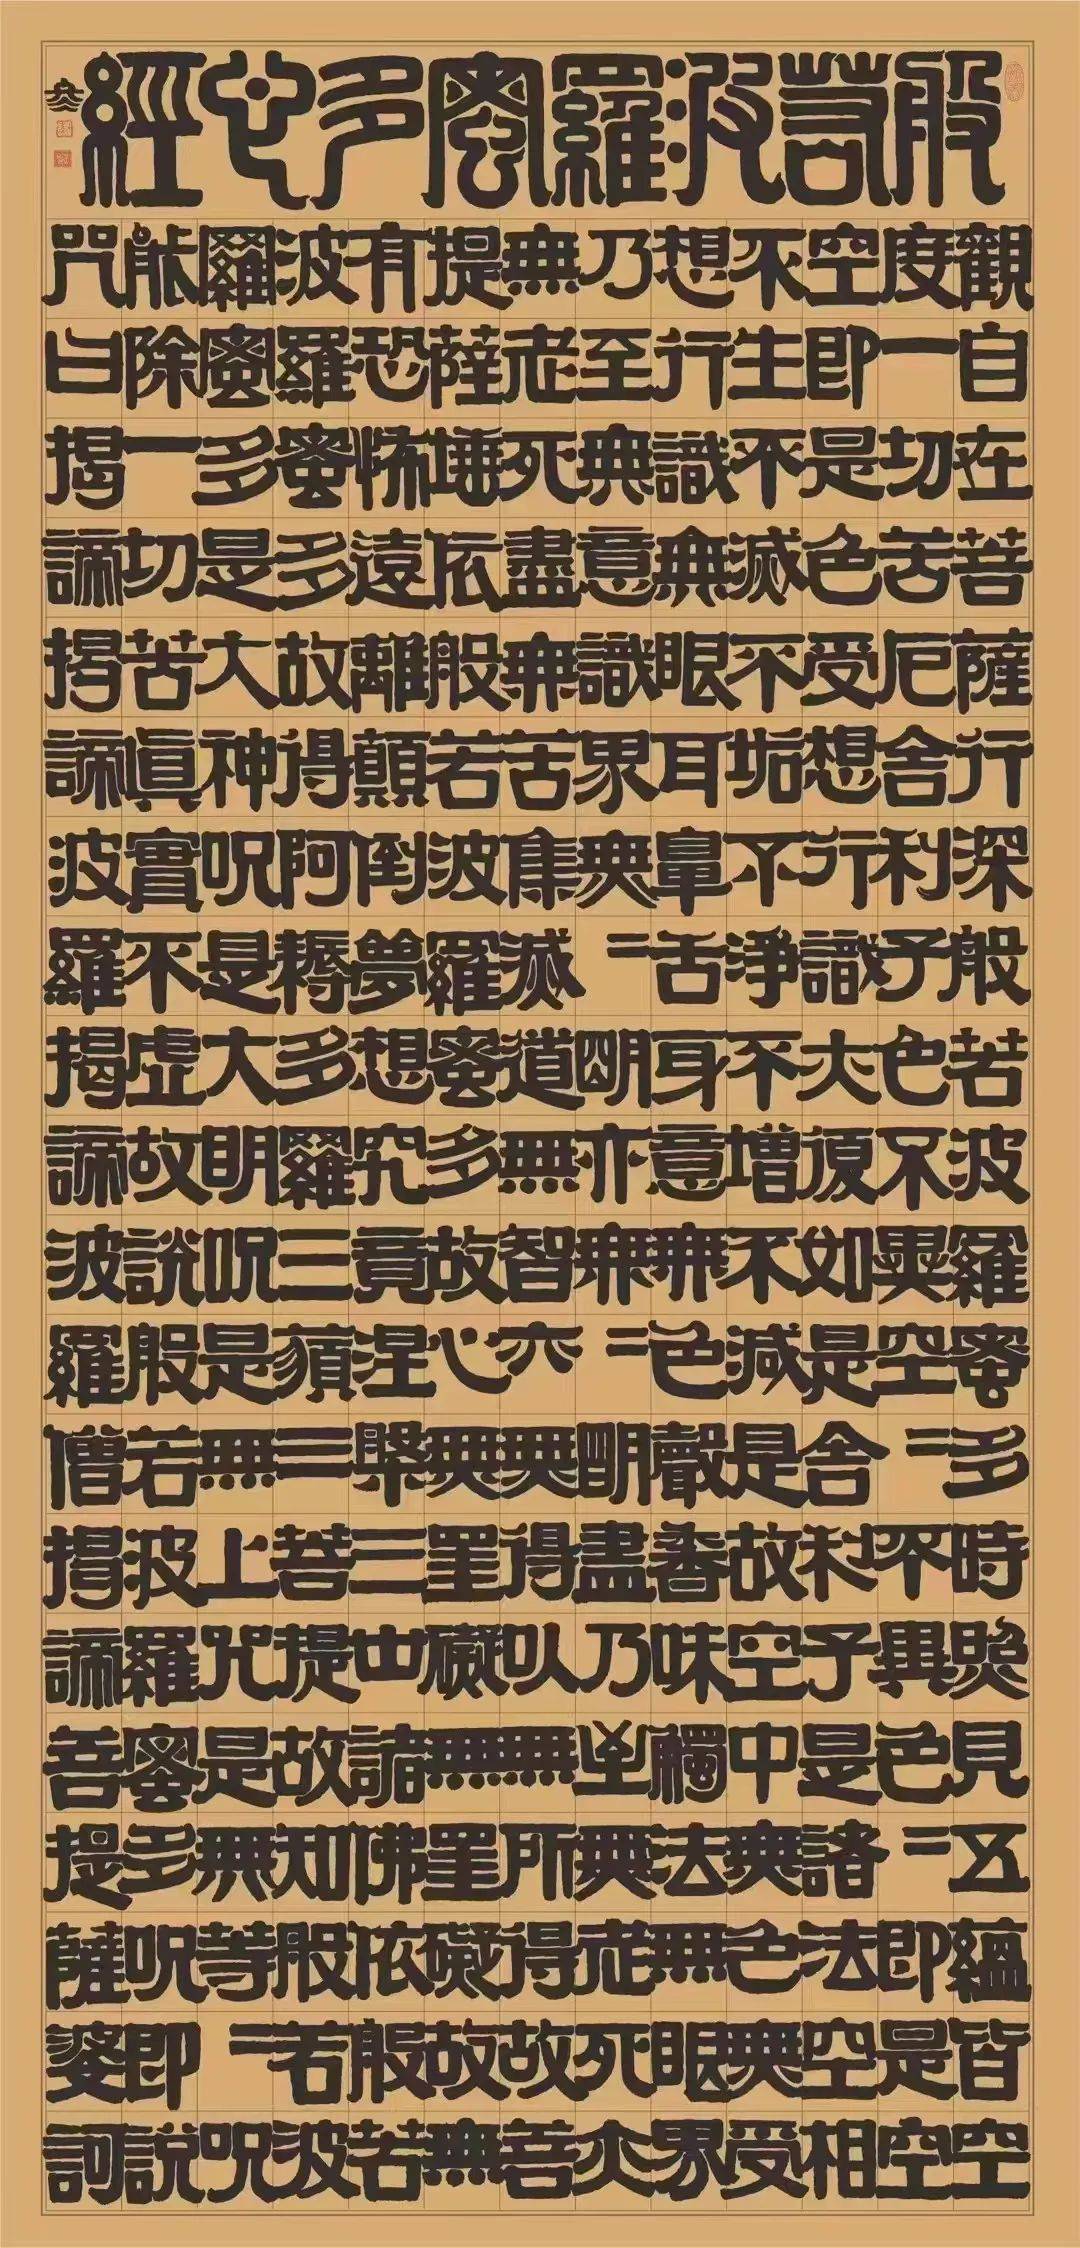 般若波羅蜜多心經
觀自在菩薩行深般若波羅蜜多時照見五蘊皆空
度一切苦厄舍利子色不異空〻不異色〻即是空
空即是色受想行識亦復如是舍利子是諸法空相
不生不滅不垢不淨不增不減是故空中無色無受
想行識無眼耳鼻舌身意無色聲香味觸法無眼界
乃至無意識界無〻明亦無〻明盡乃至無老死亦
無老死盡無苦集滅道無智亦無得以無所得故菩
提薩埵依般若波羅蜜多故心無罣礙無罣礙故無
有恐怖遠離顛倒夢想究竟涅槃三世諸佛依般若
波羅蜜多故得阿耨多羅三藐三菩提故知般若波
羅蜜多是大神呪是大明呪是無上咒是無等〻呪
能除一切苦眞實不虛故說般若波羅蜜多呪即說
咒曰揭諦揭諦波羅揭諦波羅僧揭諦菩提薩婆訶